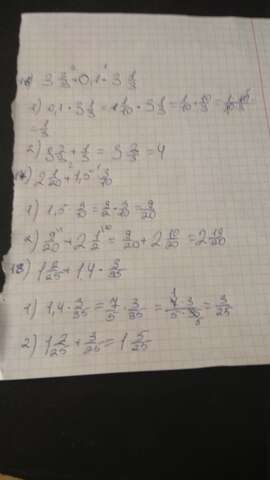 16) 3 2/3 + 0,1 · 3 1/3
1) 0,1 · 3 1/3 = 1/10 · 3 1/3 = 1/10 · 10/3 =
= 1/3
2) 3 2/3 + 1/3 = 3 3/3 = 4
17) 2 1/20 + 1,5 · 3/10
1) 1,5 · 3/10 = 3/2 · 3/10 = 9/20
2) 9/20 + 2 1/2 = 9/20 + 2 10/20 = 2 19/20
18) 1 2/25 + 1,4 · 3/35
1) 1,4 · 3/35 = 7/5 · 3/35 = 7·3/5·35 = 3/25
2) 1 2/25 + 3/25 = 1 5/25